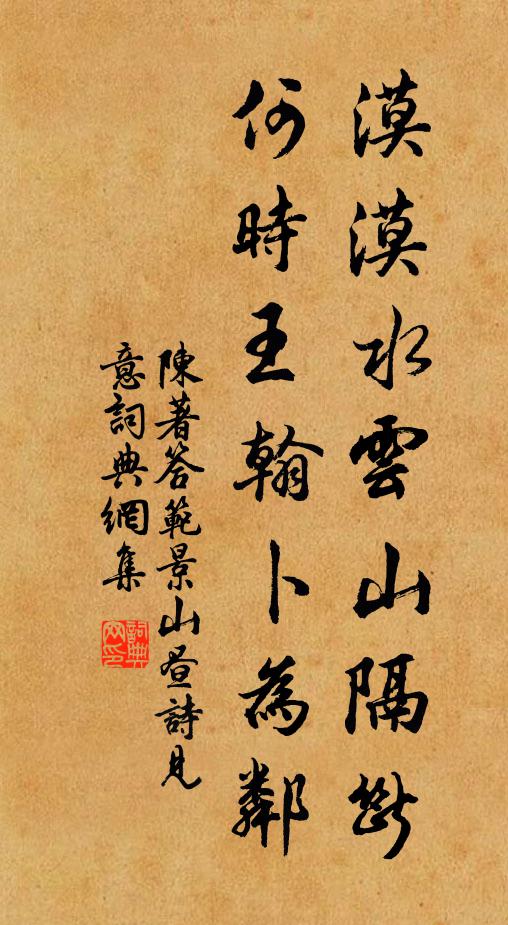 漠漠水雲山隔斷
何時王翰卜為鄰
陳著答範景山晝詩見
意詞典網集
詞典